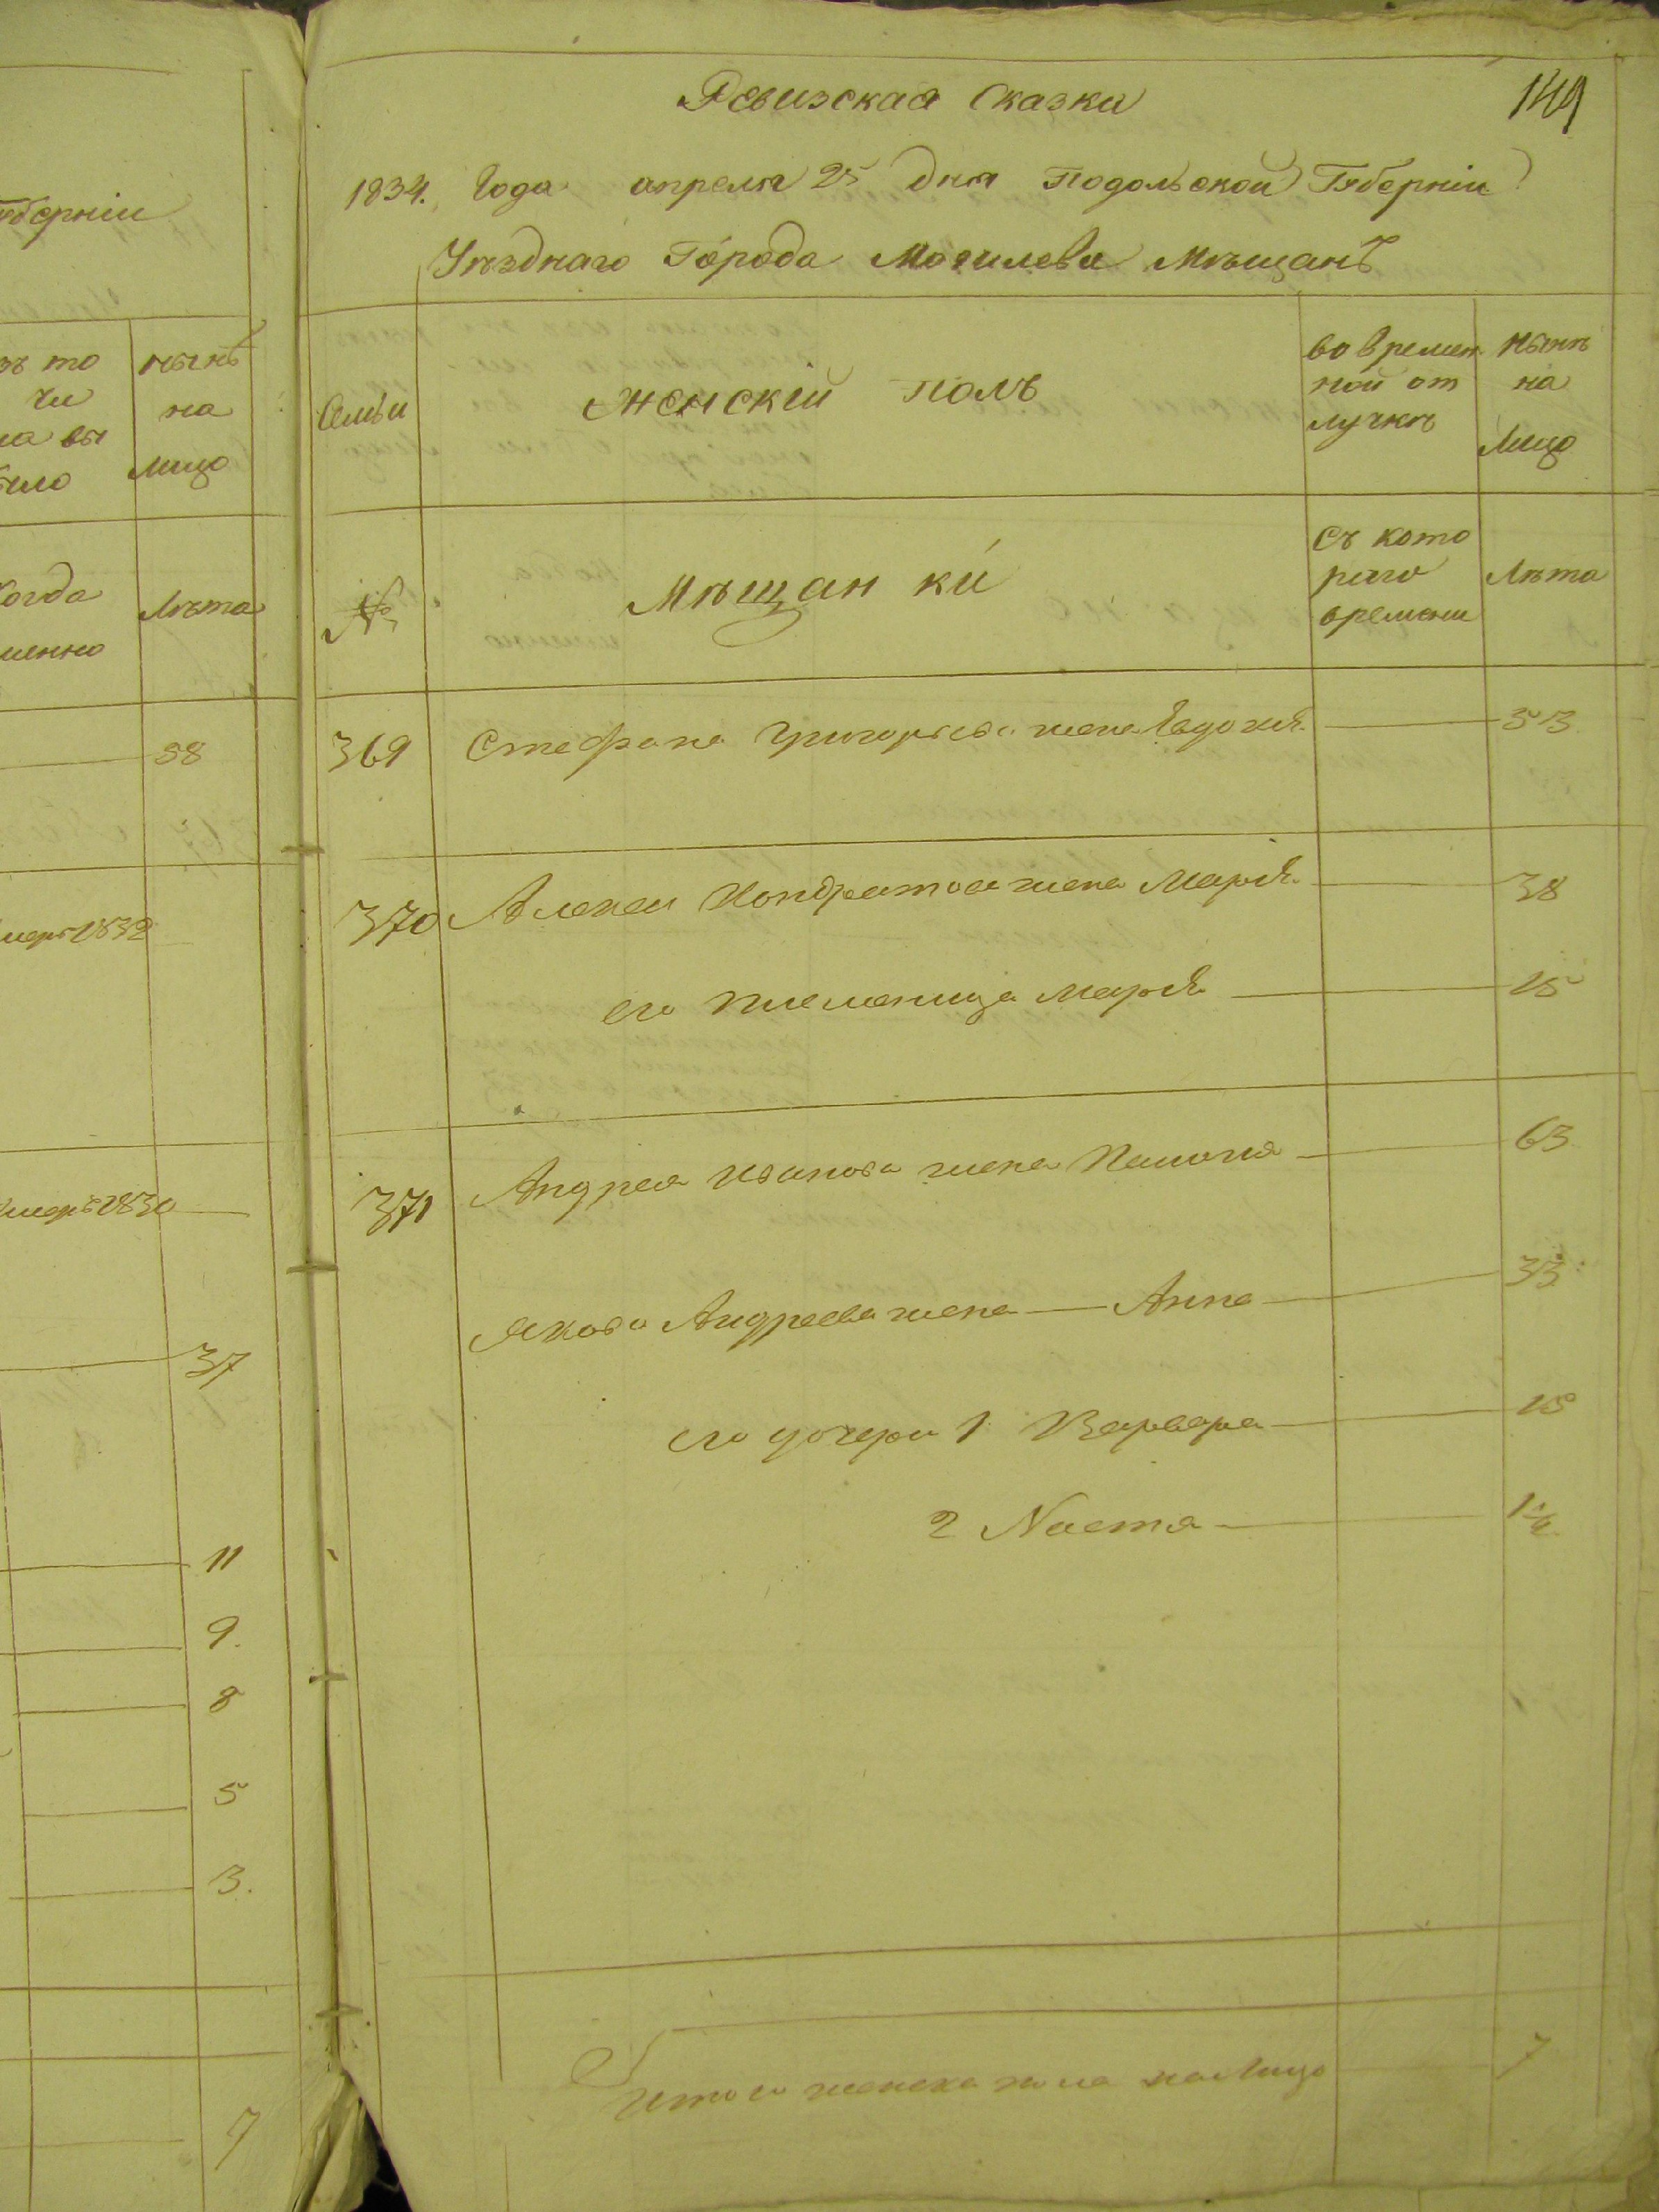 губерніи
зъ то
чи
ла вы
было
нынѣ
на
лицо
когда
именно
Лѣта
58
умеръ 1832
умеръ 1830
37
11
9.
8
5
3.
7
149
Ревизская Сказка
1834. Года апреля 25 дня Подольской Губерніи
Уѣзднаго Города Могилева Мѣщанъ
Семьи
женскій полъ
во времен
ной от
лучкѣ
нынѣ
на
лицо
№
Мѣщанки
съ кото
раго
времени
Лѣта
369 Стефана Григорьева жена Евдокія 53
370 Алексея Кондратова жена Марія 38
его племеница Марія 15
371 Андрея Иванова жена 63
Якова Андреева жена Анна 33
его дочери 1 Варвара 15
2 Настя
Итого женска пола на лицо 7